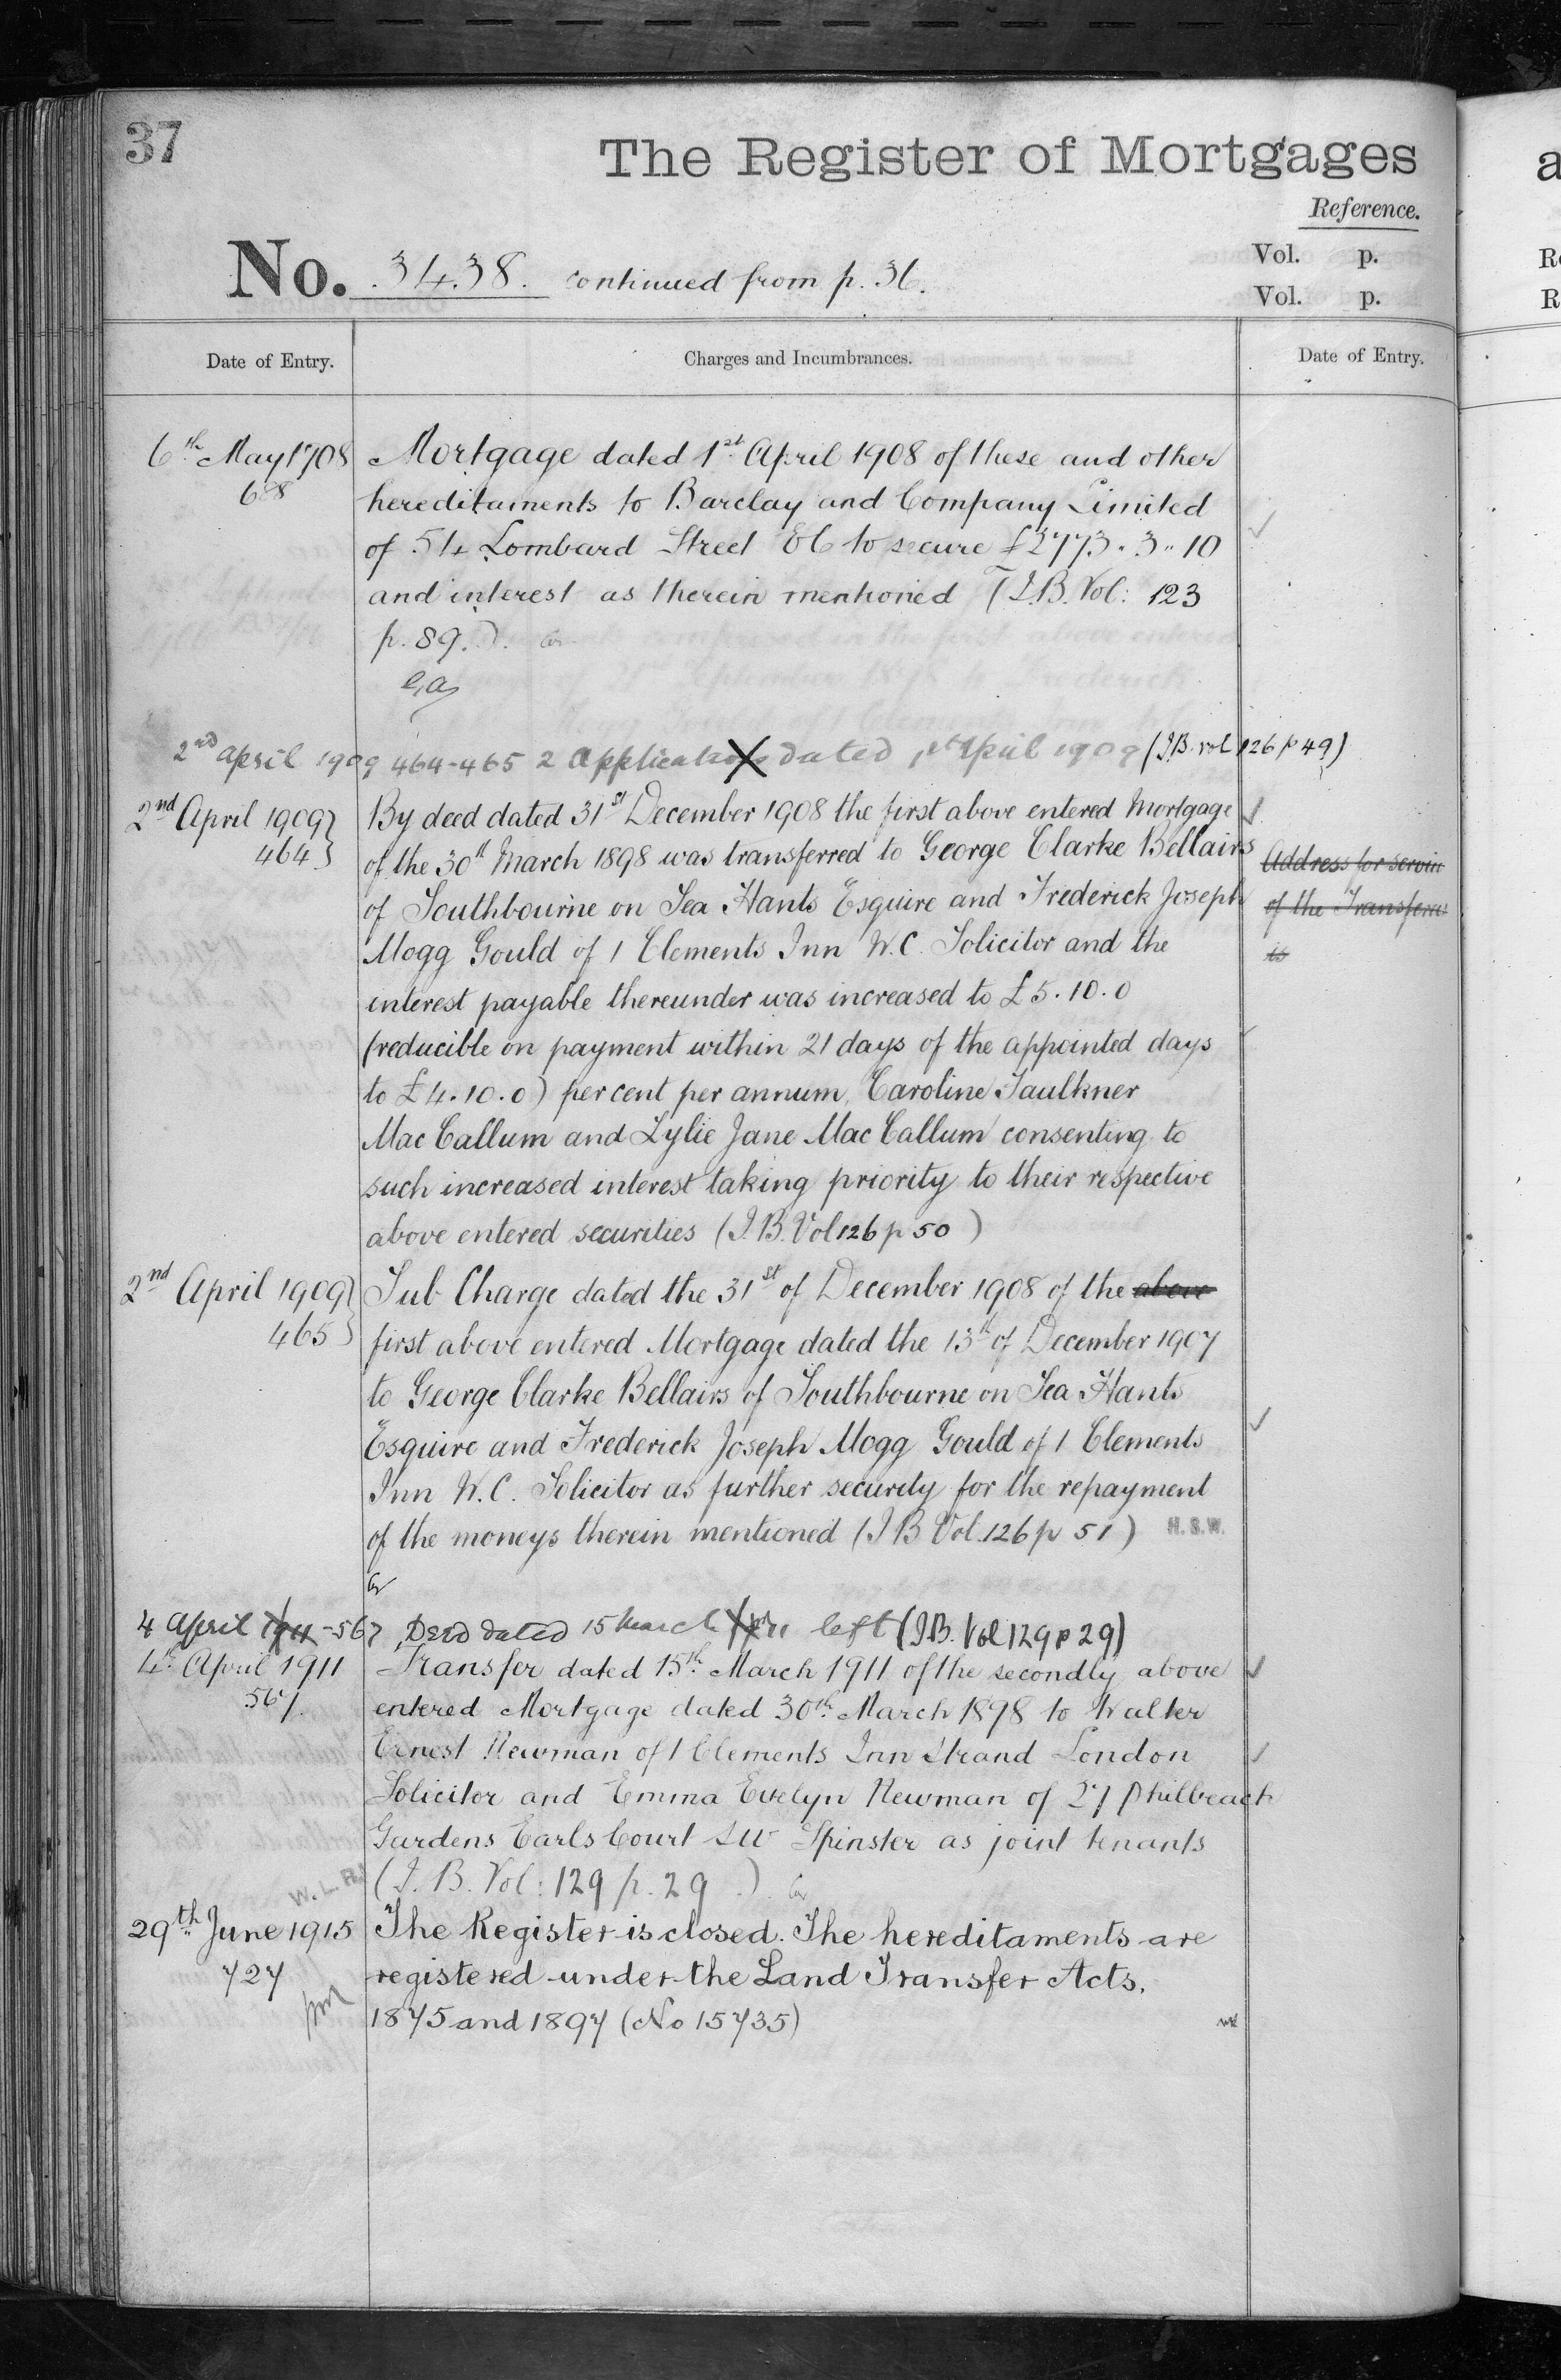 37
The Register of Mortgages
Reference.
No. 3438. continued from p. 36.
Vol. p.
Vol. p.
Date of Entry.
Charges and Incumbrances.
Date of Entry.
6th May 1908
Mortgage dated 1st April 1908 of these and other
hereditaments to Barclay and Company Limited
of 54 Lombard Street EC to secure £2773.3.10
and interest as therein mentioned (I.B. Vol: 123
p. 89.).
2nd April 1909 464-465 2 Applications dated 1st April 1909 (I.B. vol 126 p 49)
2nd April 1909}
464}
By deed dated 31st December 1908 the first above entered Mortgage
of the 30th March 1898 was transferred to George Clarke Bellairs
of Southbourne on Sea Hants Esquire and Frederick Joseph
Mogg Gould of 1 Clements Inn W.C. Solicitor and the
interest payable thereunder was increased to £5.10.0
(reducible on payment within 21 days of the appointed days
to £4.10.0) per cent per annum, Caroline Faulkner
Mac Callum and Lylie Jane Mac Callum consenting to
such increased interest taking priority to their respective
above entered securities (I.B. Vol 126 p 50)
Address for service
of the Transferees
is
2nd April 1909}
465}
Sub Charge dated the 31st of December 1908 of the above
first above entered Mortgage dated the 13th of December 1907
to George Clarke Bellairs of Southbourne on Sea Hants
Esquire and Frederick Joseph Mogg Gould of 1 Clements
Inn W.C. Solicitor as further security for the repayment
of the moneys therein mentioned (I B Vol. 126 p 51) H.S.W.
4 April 1911-567 Deed dated 15 March 1911 left (I.B. Vol 129 p 29)
4th April 1911
567.
Transfer dated 15th March 1911 of the secondly above
entered Mortgage dated 30th March 1898 to Walter
Ernest Newman of 1 Clements Inn Strand London
Solicitor and Emma Evelyn Newman of 27 Philbeach
Gardens Earls Court SW Spinster as joint tenants
(I.B. Vol: 129 p. 29.)
W.L.R.
29th June 1915
727
The Register is closed. The hereditaments are
registered under the Land Transfer Acts,
1875 and 1897 (No 15735)